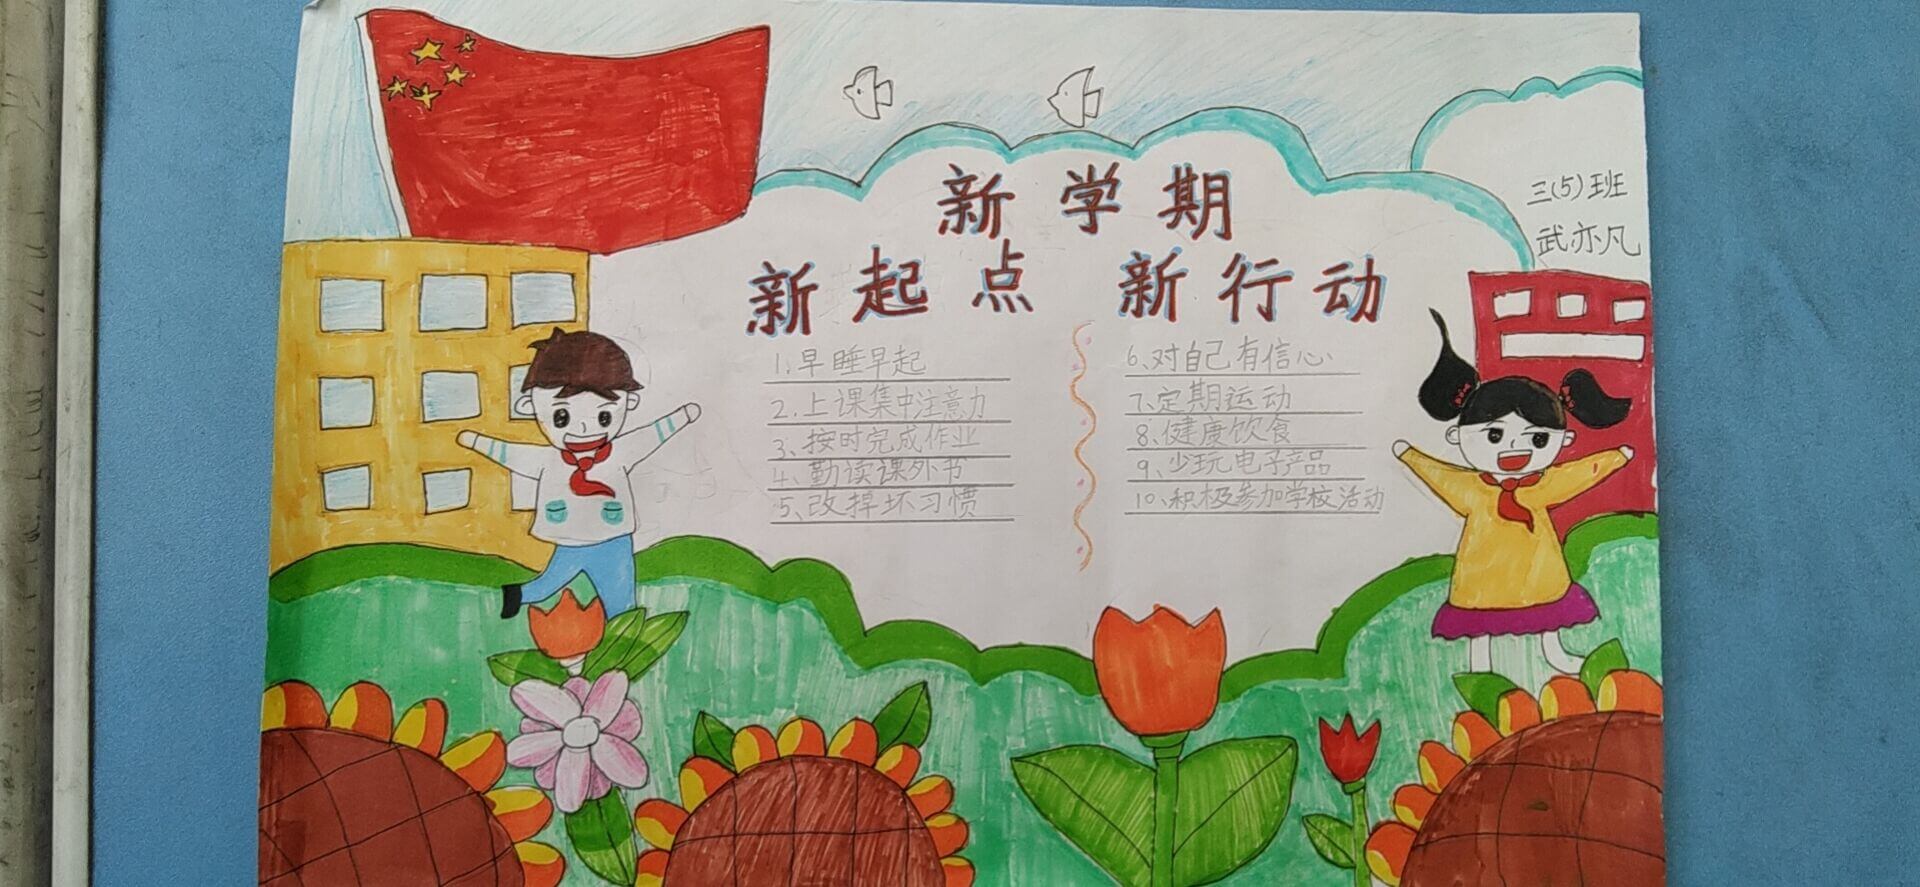 新学期
新起点 新行动
三(5)班
武亦凡
1、早睡早起
2、上课集中注意力
3、按时完成作业
4、勤读课外书
5、改掉坏习惯
6、对自己有信心
7、定期运动
8、健康饮食
9、少玩电子产品
10、积极参加学校活动